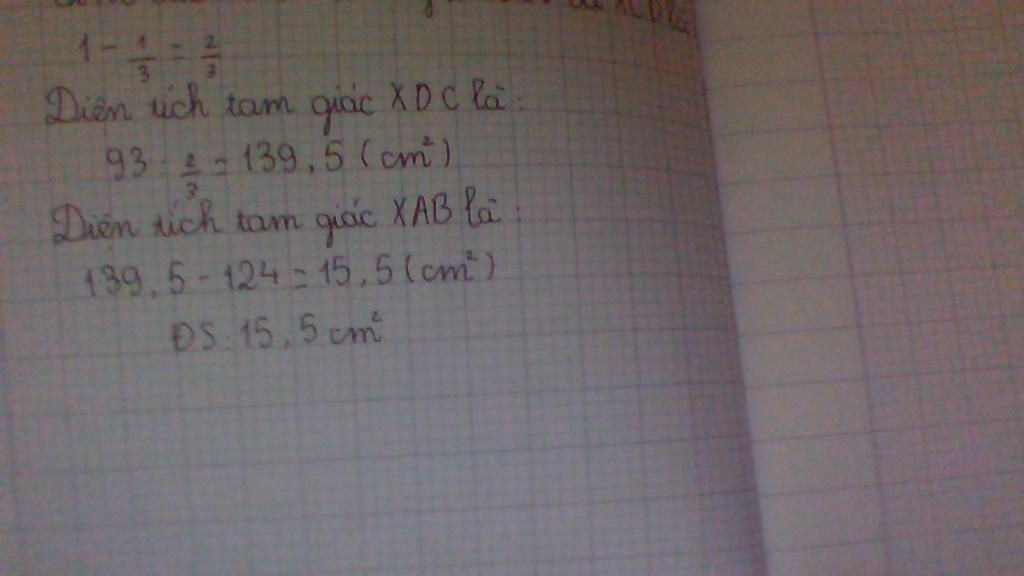 1 - 1/3 = 2/3
Diện tích tam giác XDC là:
93 : 2/3 = 139,5 (cm²)
Diện tích tam giác XAB là:
139,5 - 124 = 15,5 (cm²)
ĐS: 15,5 cm²